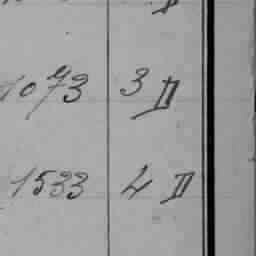 1073 3 II
1533 4 II